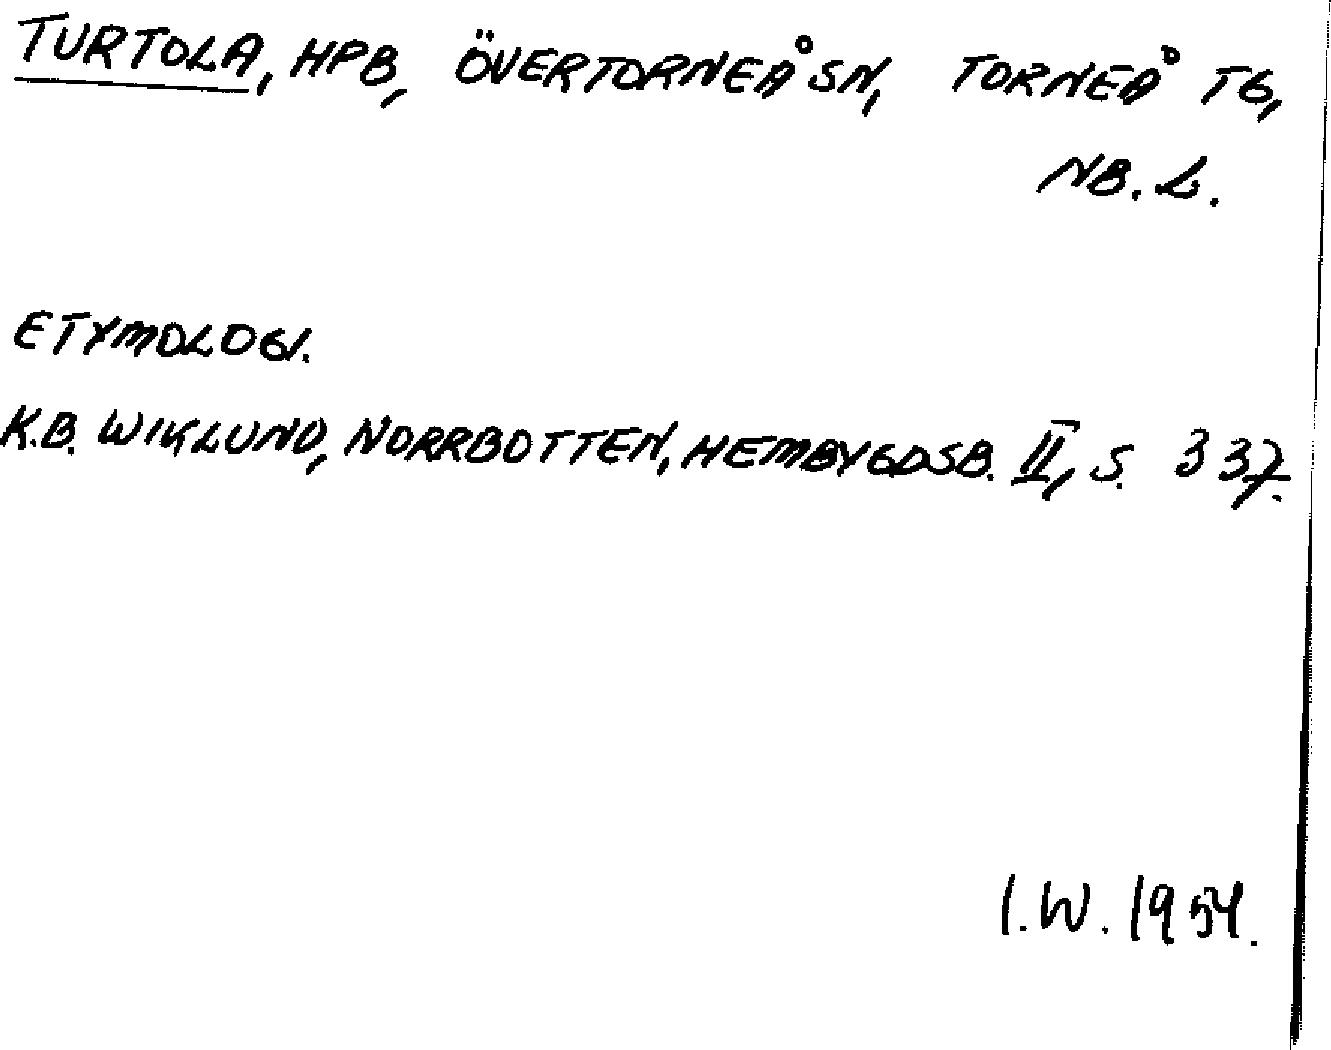 TURTOLA, HPB, ÖVERTORNEÅ SN, TORNEÅ TG,
NB. L.
ETYMOLOGI.
K.B. WIKLUND, NORRBOTTEN, HEMBYGDSB. II, S. 337.
I.W. 1954.